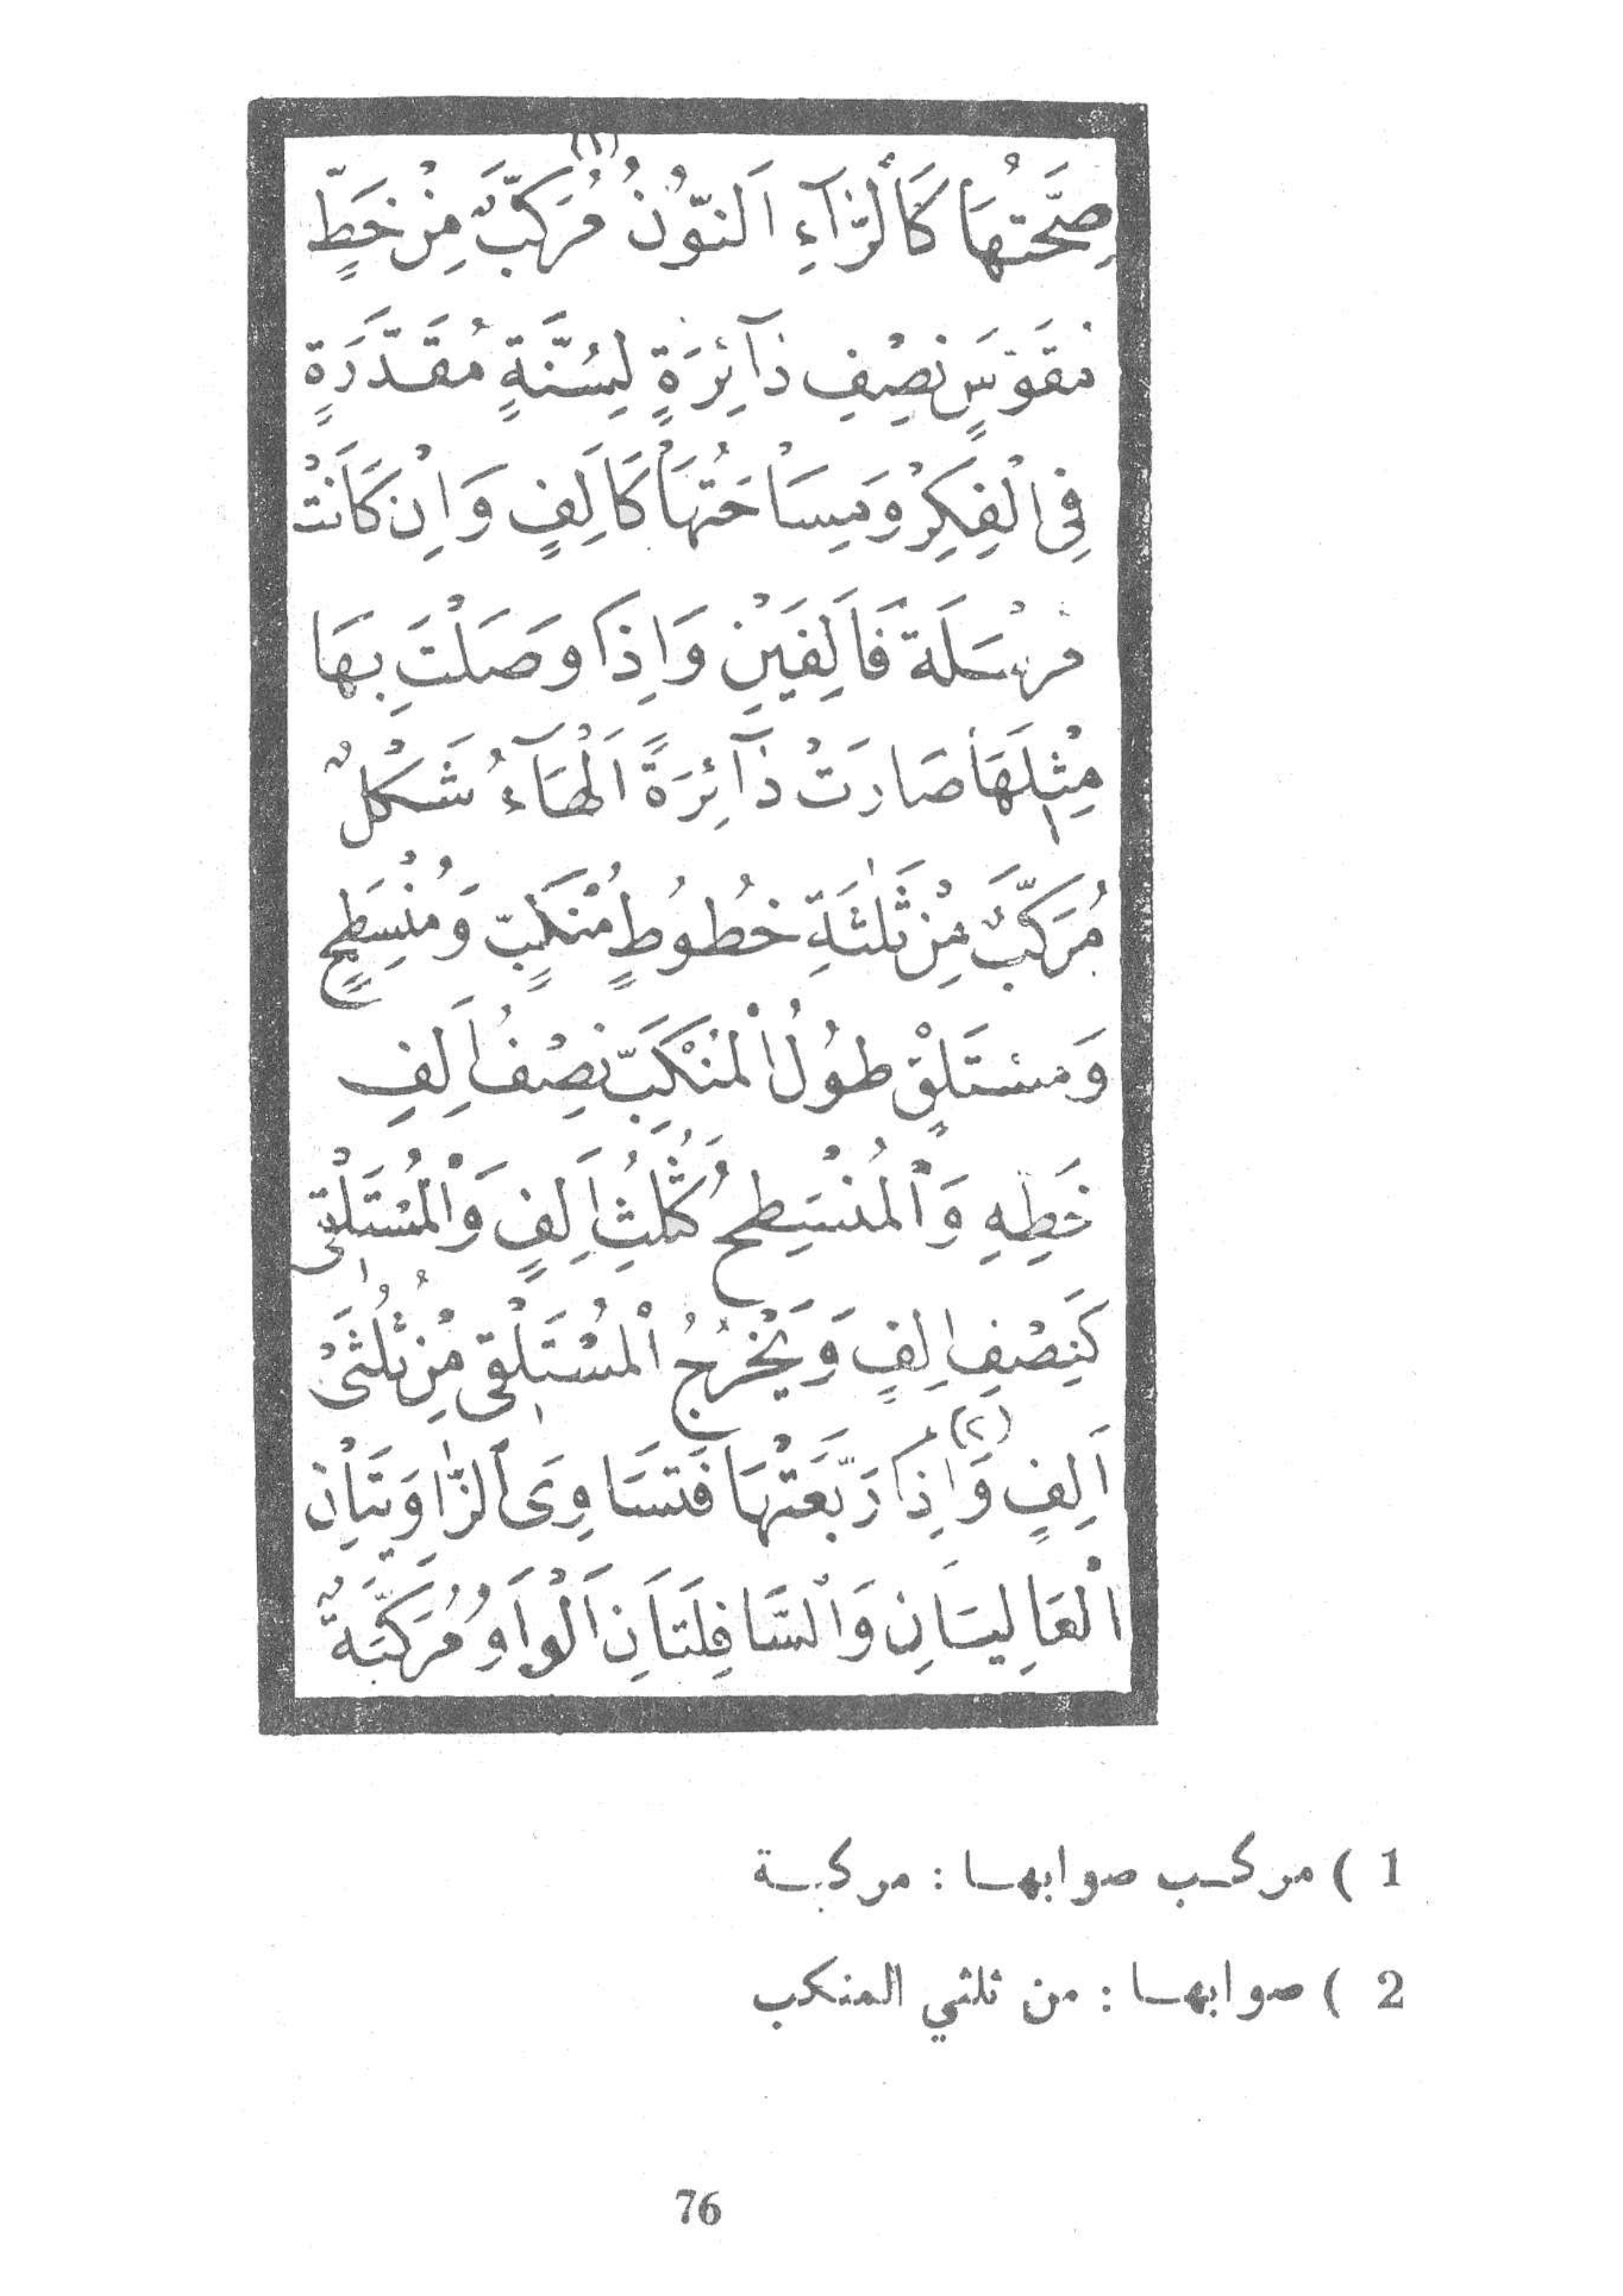 صِحَّتُهَا كَالرَّآءِ اَلنُّوْنُ مُرَكَّبٌ (١) مِنْ خَطٍّ
مُقَوَّسٍ نِصْفِ ذَآئِرَةٍ لِسُنَّةٍ مُقَدَّرَةٍ
فِي الْفِكِرْ وَمِسَاحَتُهَا كَاَلِفٍ وَاِنْ كَانَتْ
مُرْسَلَة فَاَلِفَيْنِ وَاِذَا وَصَلْتَ بِهَا
مِثْلَهَا صَارَتْ ذَآئِرَةً اَلْهَآءُ شَكْلٌ
مُرَكَّبٌ مِنْ ثَلٰثَةِ خُطُوُطٍ مُنْكَبٍّ وَمُنْسَطِحٍ
وَمسْتَلْقٍ طُوُلُ الْمُنْكَبِّ نِصْفُ اَلِفِ
خَطِهِ وَالْمُنْسَطِحُ كَثُلُثِ اَلِفٍ وَالْمُسْتَلْقِى
كَنِصْفِ اَلِفٍ وَيَخْرُجُ الْمُسْتَلْقِى مِنْ ثُلُثَىْ
اَلِفٍ (٢) وَاِذَا رَبَّعْتَهَا فَتسَاوِى الزَّاوِيَتَانِ
الْعَالِيتَانِ وَالسَّافِلَتَانِ اَلْوَاوُ مُرَكَّبَةٌ
1 ) مركب صوابها : مركبة
2 ) صوابها : من ثلثي المنكب
76